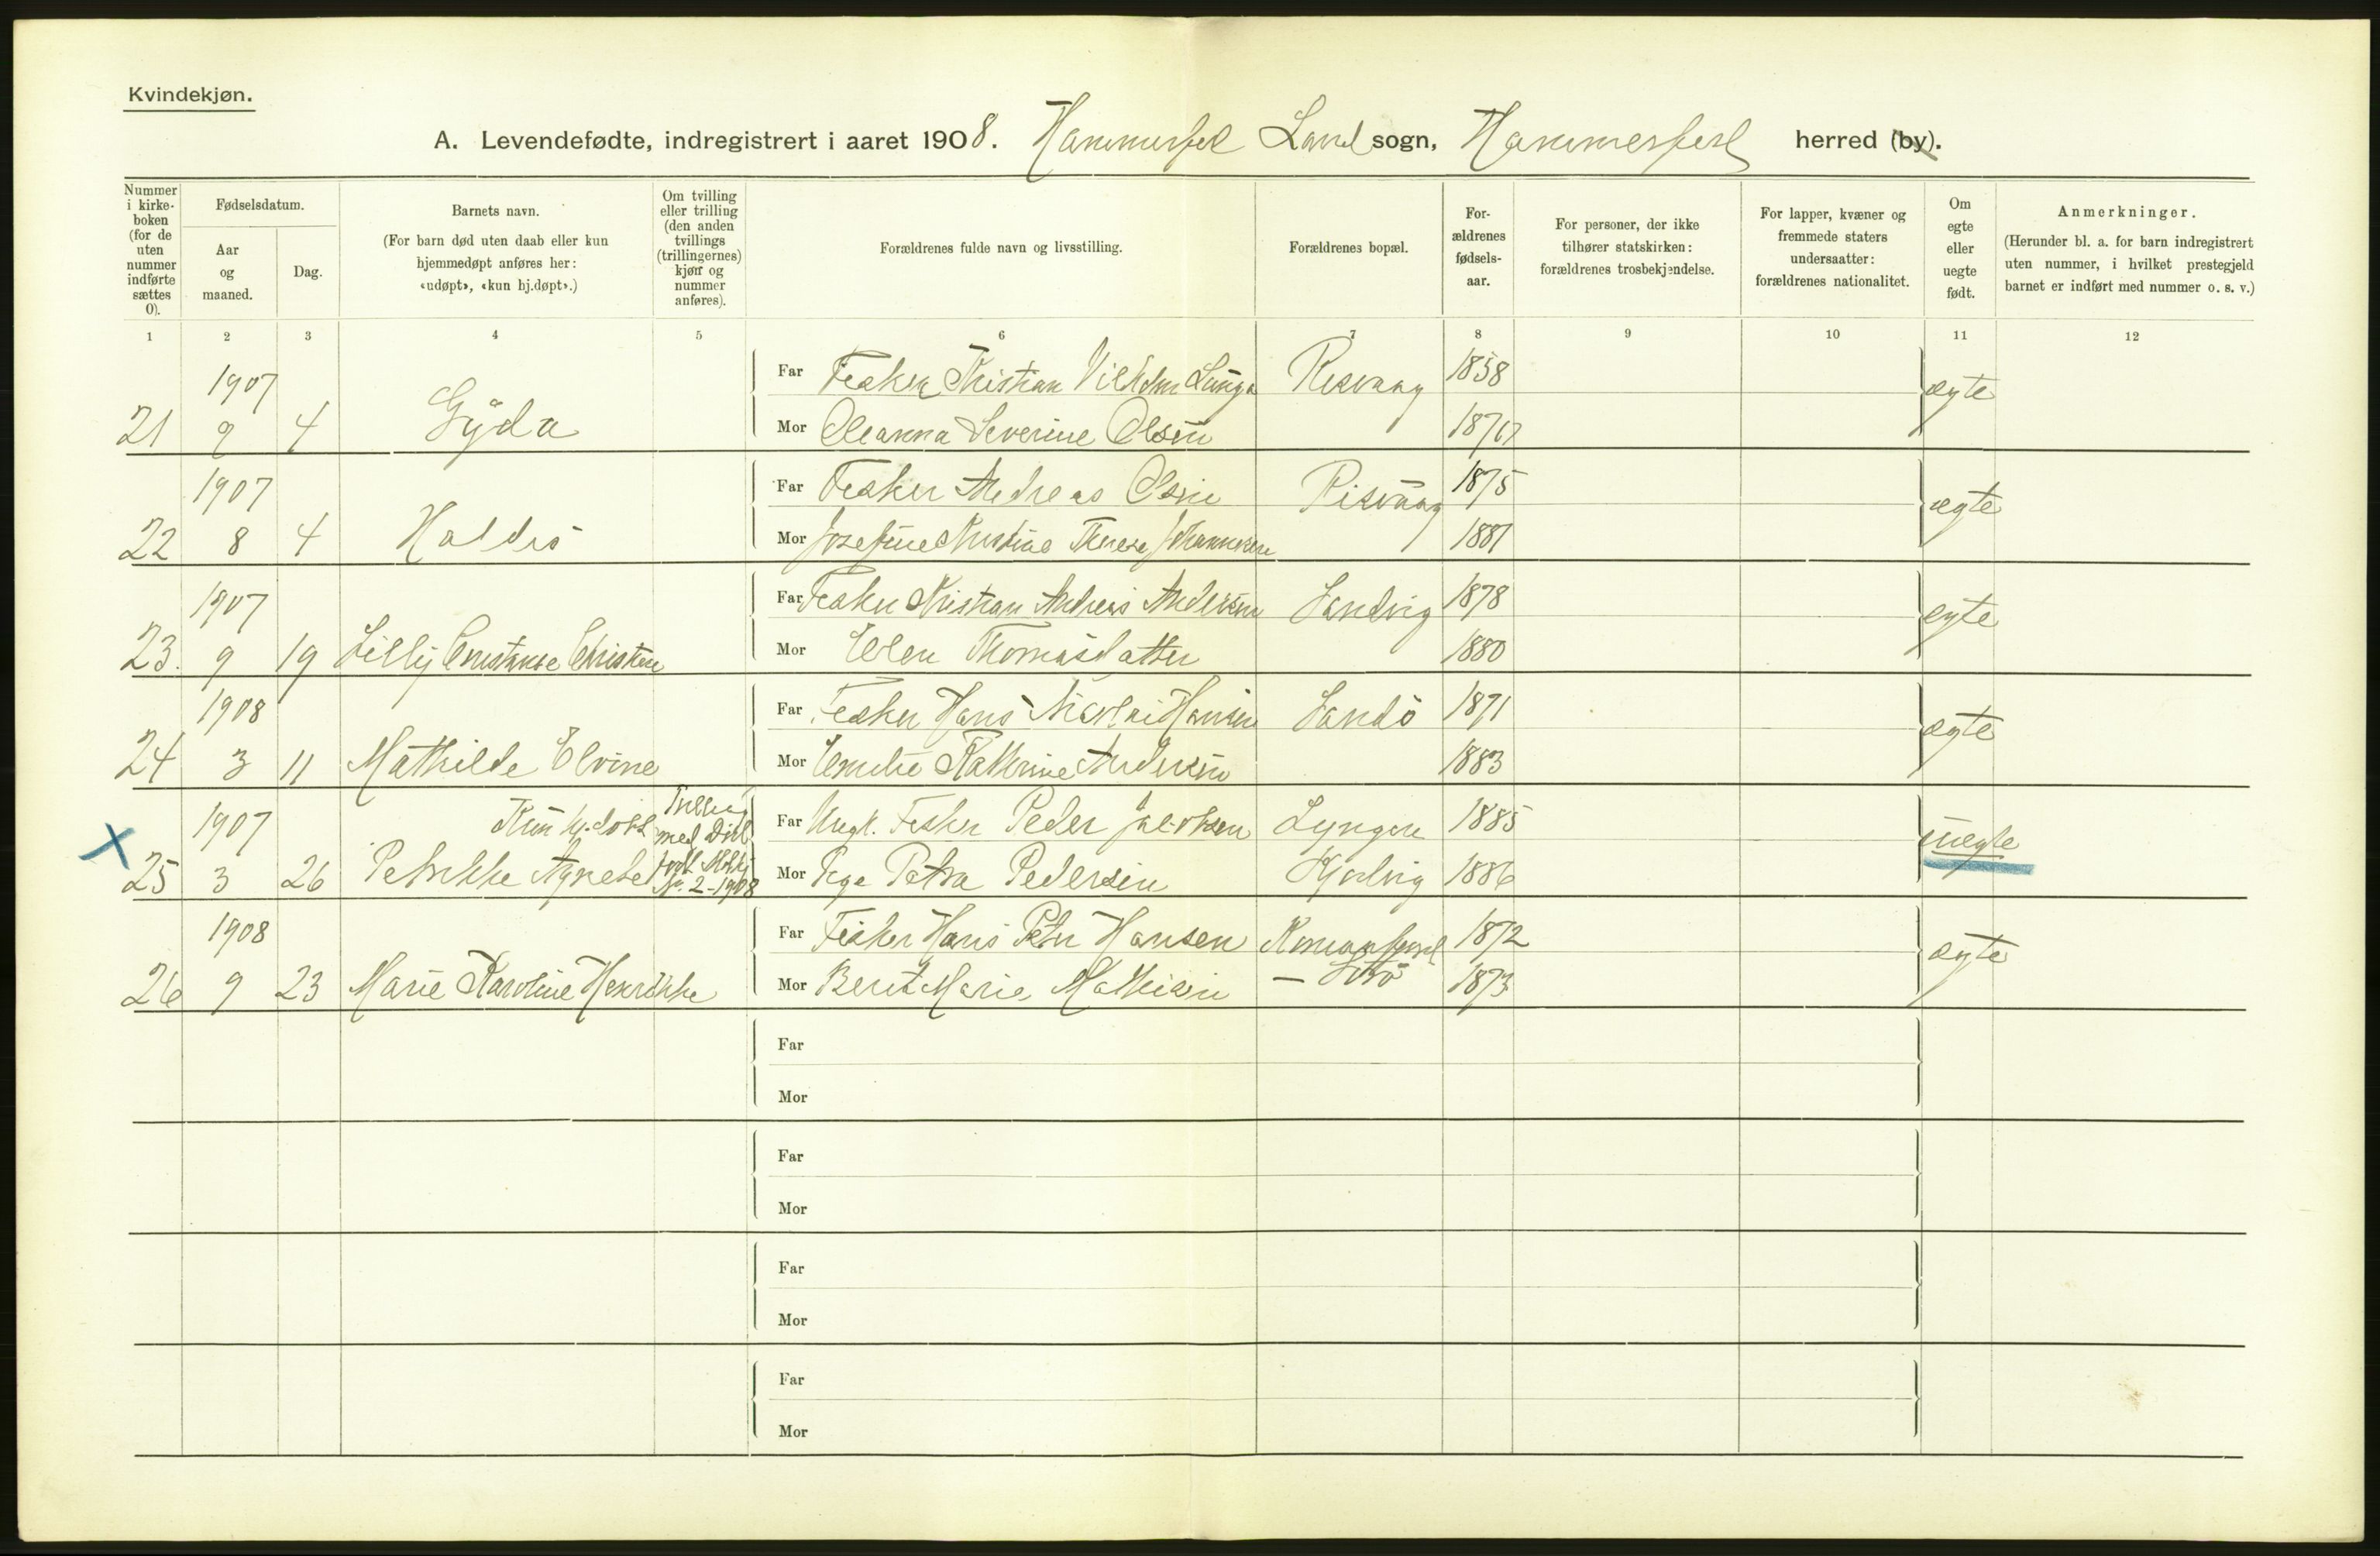 Kvindekjøn.
A. Levendefødte, indregistrert i aaret 1908. Hammerfest Land sogn, Hammerfest herred (by).
Nummer i kirkeboken (for de uten nummer indførte sættes 0).
Fødselsdatum.
Aar og maaned.
Dag.
Barnets navn.
(For barn død uten daab eller kun hjemmedøpt anføres her: «udøpt», «kun hj.døpt».)
Om tvilling eller trilling (den anden tvillings (trillingernes) kjøn og nummer anføres).
Forældrenes fulde navn og livsstilling.
Forældrenes bopæl.
Forældrenes fødselsaar.
For personer, der ikke tilhører statskirken: forældrenes trosbekjendelse.
For lapper, kvæner og fremmede staters undersaatter: forældrenes nationalitet.
Om egte eller uegte født.
Anmerkninger.
(Herunder bl. a. for barn indregistrert uten nummer, i hvilket prestegjeld barnet er indført med nummer o. s. v.)
1 2 3 4 5 6 7 8 9 10 11 12
1907 Far Fisker Kristian Vilhelm Risvaag 1858 ægte
21 9 4 Gyda Mor Oleanna Severine Olsen
1907 Far Fisker Andreas Olsen Risvaag 1875 ægte
22 8 4 Haldis Mor Josefine Kristine Therese Johannesen 1881
1907 Far Fisker Kristian Andreas Andersen Sandvig 1878 egte
23. 9 19 Lilly Constanse Mor Ellen Thomasdatter 1880
1908 Far Fisker Hans Hansen Sandö 1871 ægte
24 3 11 Mathilde Elvine Mor Emelie Kathrine Andersen 1883
1907 Kun hj. döbt Tvilling med Far Ungk. Fisker Peder Jacobsen Lyngen 1885 uegte
X 25 3 26 Petrikke Agnete No. 2-1908 Mor Pige Petra Pedersen 1886
1908 Far Fisker Hans Peter Hansen 1872 ægte
26 9 23 Marie Karoline Henrikke Mor Berit Marie Mathisen - Sörö 1873
Far
Mor
Far
Mor
Far
Mor
Far
Mor